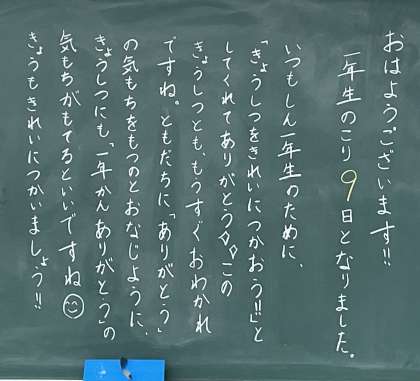 おはようございます!!
一年生のこり9日となりました。
いつもしん一年生のために、
「きょうしつをきれいにつかおう!!」と
してくれてありがとう✧✧この
きょうしつとも、もうすぐおわかれ
ですね。ともだちに、「ありがとう」
の気もちをもつのとおなじように、
きょうしつにも「一年かんありがとう」の
気もちがもてるといいですね☺
きょうもきれいにつかいましょう!!